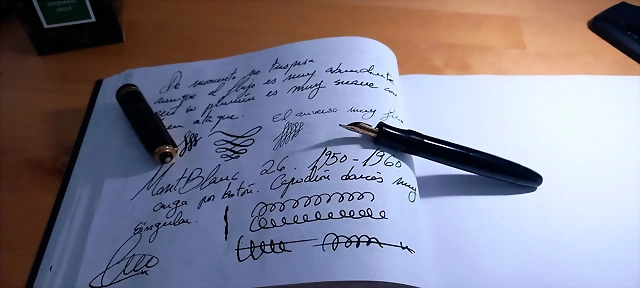 De momento no traspasa
aunque el flujo es muy abundante
es muy suave con
buen ataque.
El anverso muy fino
MontBlanc 26. 1950-1960
carga por botón. Capuchón danés muy
singular.